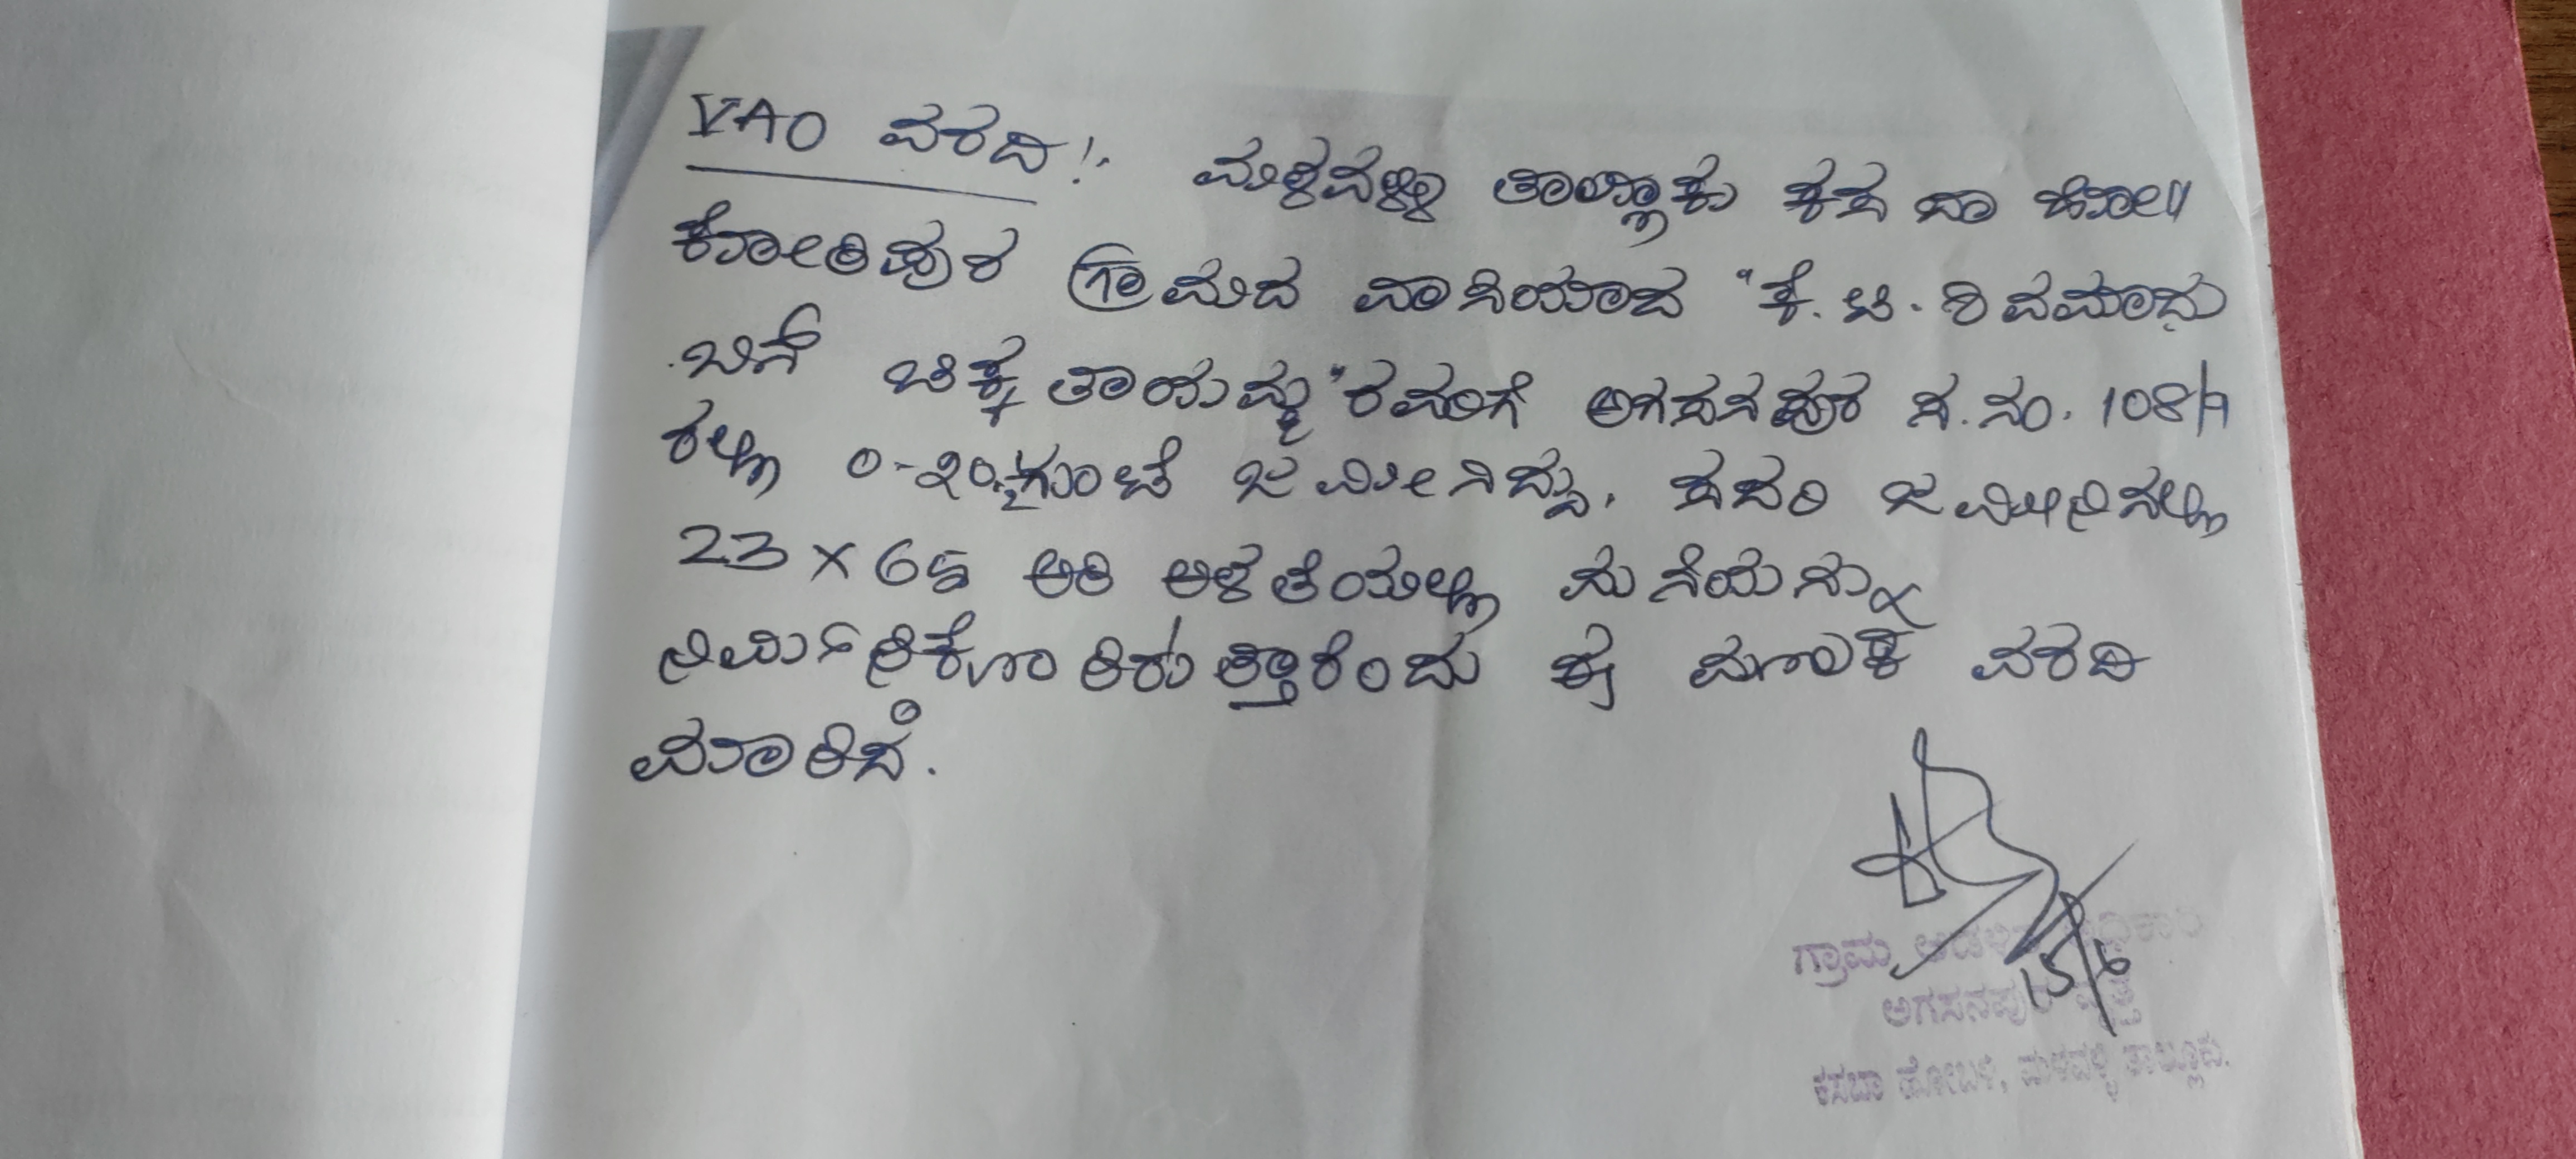 VAO ವರದಿ:- ಮಳವಳ್ಳಿ ತಾಲ್ಲೂಕು ಕಸಬಾ ಹೋ॥
ಕೋಡಿಪುರ ಗ್ರಾಮದ ವಾಸಿಯಾದ "ಕೆ.ಟಿ. ಶಿವಮಾದು
ಬಿನ್ ಚಿಕ್ಕತಾಯಮ್ಮ"ರವರಿಗೆ ಅಗಸನಪುರ ಸ.ನಂ. 108/
ರಲ್ಲಿ 0-20 ಗುಂಟೆ ಜಮೀನಿದ್ದು, ಸದರಿ ಜಮೀನಿನಲ್ಲಿ
23 X 65 ಅಡಿ ಅಳತೆಯಲ್ಲಿ ಮನೆಯನ್ನು
ನಿರ್ಮಿಸಿಕೊಂಡಿರುತ್ತಾರೆಂದು ಈ ಮೂಲಕ ವರದಿ
ಮಾಡಿದೆ.
15/6
ಗ್ರಾಮ ಆಡಳಿತ ಅಧಿಕಾರಿ
ಅಗಸನಪುರ ವೃತ್ತ
ಕಸಬಾ ಹೋಬಳಿ, ಮಳವಳ್ಳಿ ತಾಲ್ಲೂಕು.